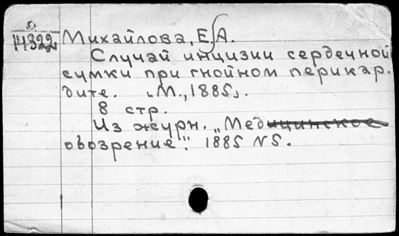 О
14322 Михайлова, Е.А.
Случай инцизии сердечной
сумки при гнойном перикар-
дите. М., 1885.
8 стр.
Из журн. „Медицинское
обозрение". 1885 N5.